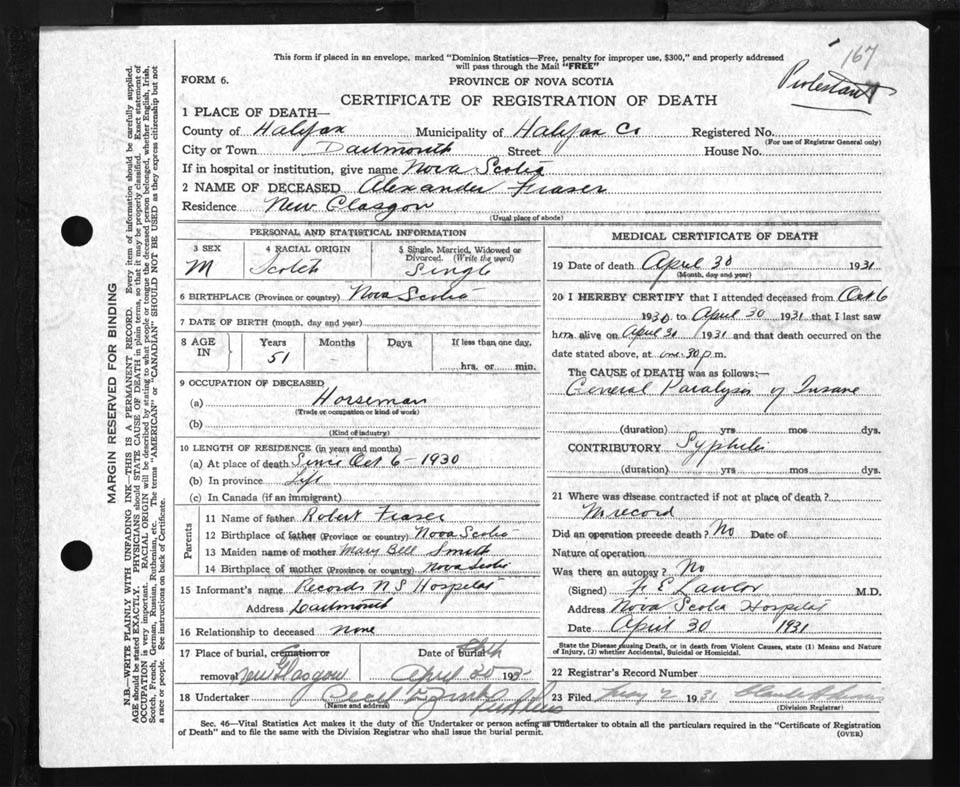 This form if placed in an envelope, marked "Dominion Statistics—Free, penalty for improper use, $300," and properly addressed
will pass through the Mail "FREE"
167
Protestant
FORM 6.
PROVINCE OF NOVA SCOTIA
CERTIFICATE OF REGISTRATION OF DEATH
1 PLACE OF DEATH—
County of Halifax Municipality of Halifax Co Registered No.
(For use of Registrar General only)
City or Town Dartmouth Street House No.
If in hospital or institution, give name Nova Scotia
2 NAME OF DECEASED Alexander Fraser
Residence New Glasgow
(Usual place of abode)
PERSONAL AND STATISTICAL INFORMATION
3 SEX 4 RACIAL ORIGIN 5 Single, Married, Widowed or
Divorced. (Write the word)
M Scotch Single
6 BIRTHPLACE (Province or country) Nova Scotia
7 DATE OF BIRTH (month, day and year)
8 AGE IN Years Months Days If less than one day,
51 hrs. or min.
9 OCCUPATION OF DECEASED
(a) Horseman
(Trade or occupation or kind of work)
(b)
(Kind of industry)
10 LENGTH OF RESIDENCE (in years and months)
(a) At place of death Since Oct 6 - 1930
(b) In province Life
(c) In Canada (if an immigrant)
Parents
11 Name of father Robert Fraser
12 Birthplace of father (Province or country) Nova Scotia
13 Maiden name of mother Mary Bell Smith
14 Birthplace of mother (Province or country) Nova Scotia
15 Informant's name Records N S Hospital
Address Dartmouth
16 Relationship to deceased none
17 Place of burial, cremation or Date of burial
removal New Glasgow April 30 193
18 Undertaker Cecil
(Name and address)
MEDICAL CERTIFICATE OF DEATH
19 Date of death April 30 1931
(Month, day and year)
20 I HEREBY CERTIFY that I attended deceased from Oct 6
1930 to April 30 1931 that I last saw
him alive on April 30 1931 and that death occurred on the
date stated above, at one-30 p.m.
The CAUSE of DEATH was as follows:—
General Paralysis of Insane
(duration) yrs mos dys.
CONTRIBUTORY Syphilis
(duration) yrs mos dys.
21 Where was disease contracted if not at place of death?
No record
Did an operation precede death? No Date of
Nature of operation
Was there an autopsy? No
(Signed) E Lawlor M.D.
Address Nova Scotia Hospital
Date April 30 1931
State the Disease causing Death, or in death from Violent Causes, state (1) Means and Nature
of Injury, (2) whether Accidental, Suicidal or Homicidal.
22 Registrar's Record Number
23 Filed May 2 1931
(Division Registrar)
Sec. 46—Vital Statistics Act makes it the duty of the Undertaker or person acting as Undertaker to obtain all the particulars required in the "Certificate of Registration
of Death" and to file the same with the Division Registrar who shall issue the burial permit.
(OVER)
MARGIN RESERVED FOR BINDING
N.B.—WRITE PLAINLY WITH UNFADING INK—THIS IS A PERMANENT RECORD. Every item of information should be carefully supplied.
AGE should be stated EXACTLY. PHYSICIANS should STATE CAUSE OF DEATH in plain terms, so that it may be properly classified. Exact statement of
OCCUPATION is very important. RACIAL ORIGIN will be described by stating to what people or tongue the deceased person belonged, whether English, Irish,
Scotch, French, German, Russian, Ruthenian, etc. The terms "AMERICAN" or "CANADIAN" SHOULD NOT BE USED as they express citizenship but not
a race or people. See instructions on back of Certificate.